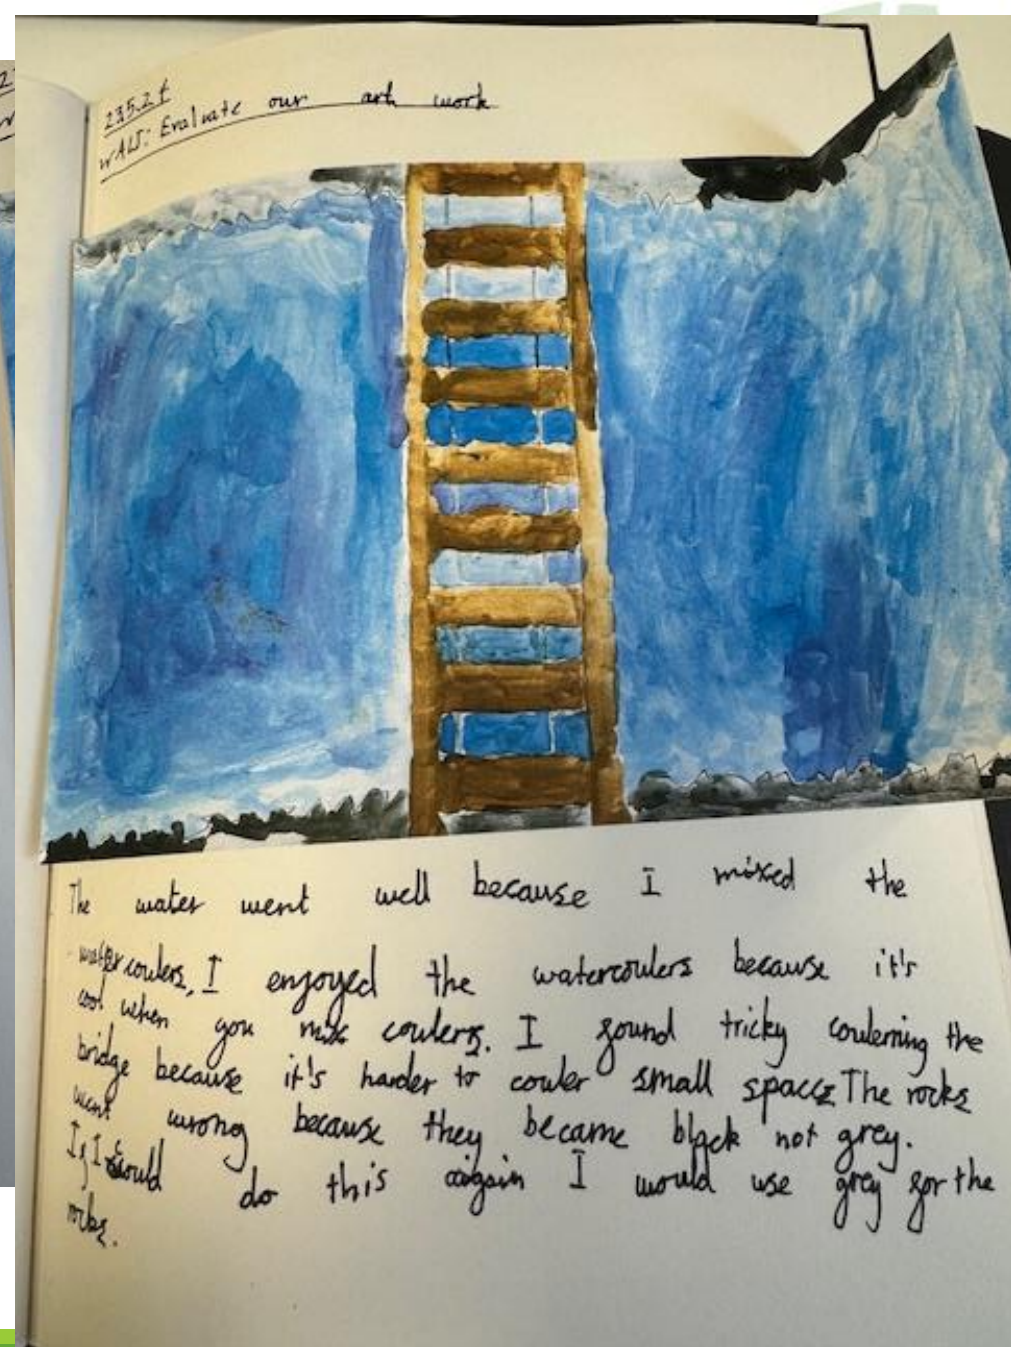 23.5.24
WALT: Evaluate our art work
The water went well because I mixed the
watercoulers, I enjoyed the watercoulers because it's
cool when you mix coulers. I found tricky coulerning the
bridge because it's harder to couler small spaces The rocks
went wrong because they became black not grey.
If I could do this aigain I would use grey for the
rocks.